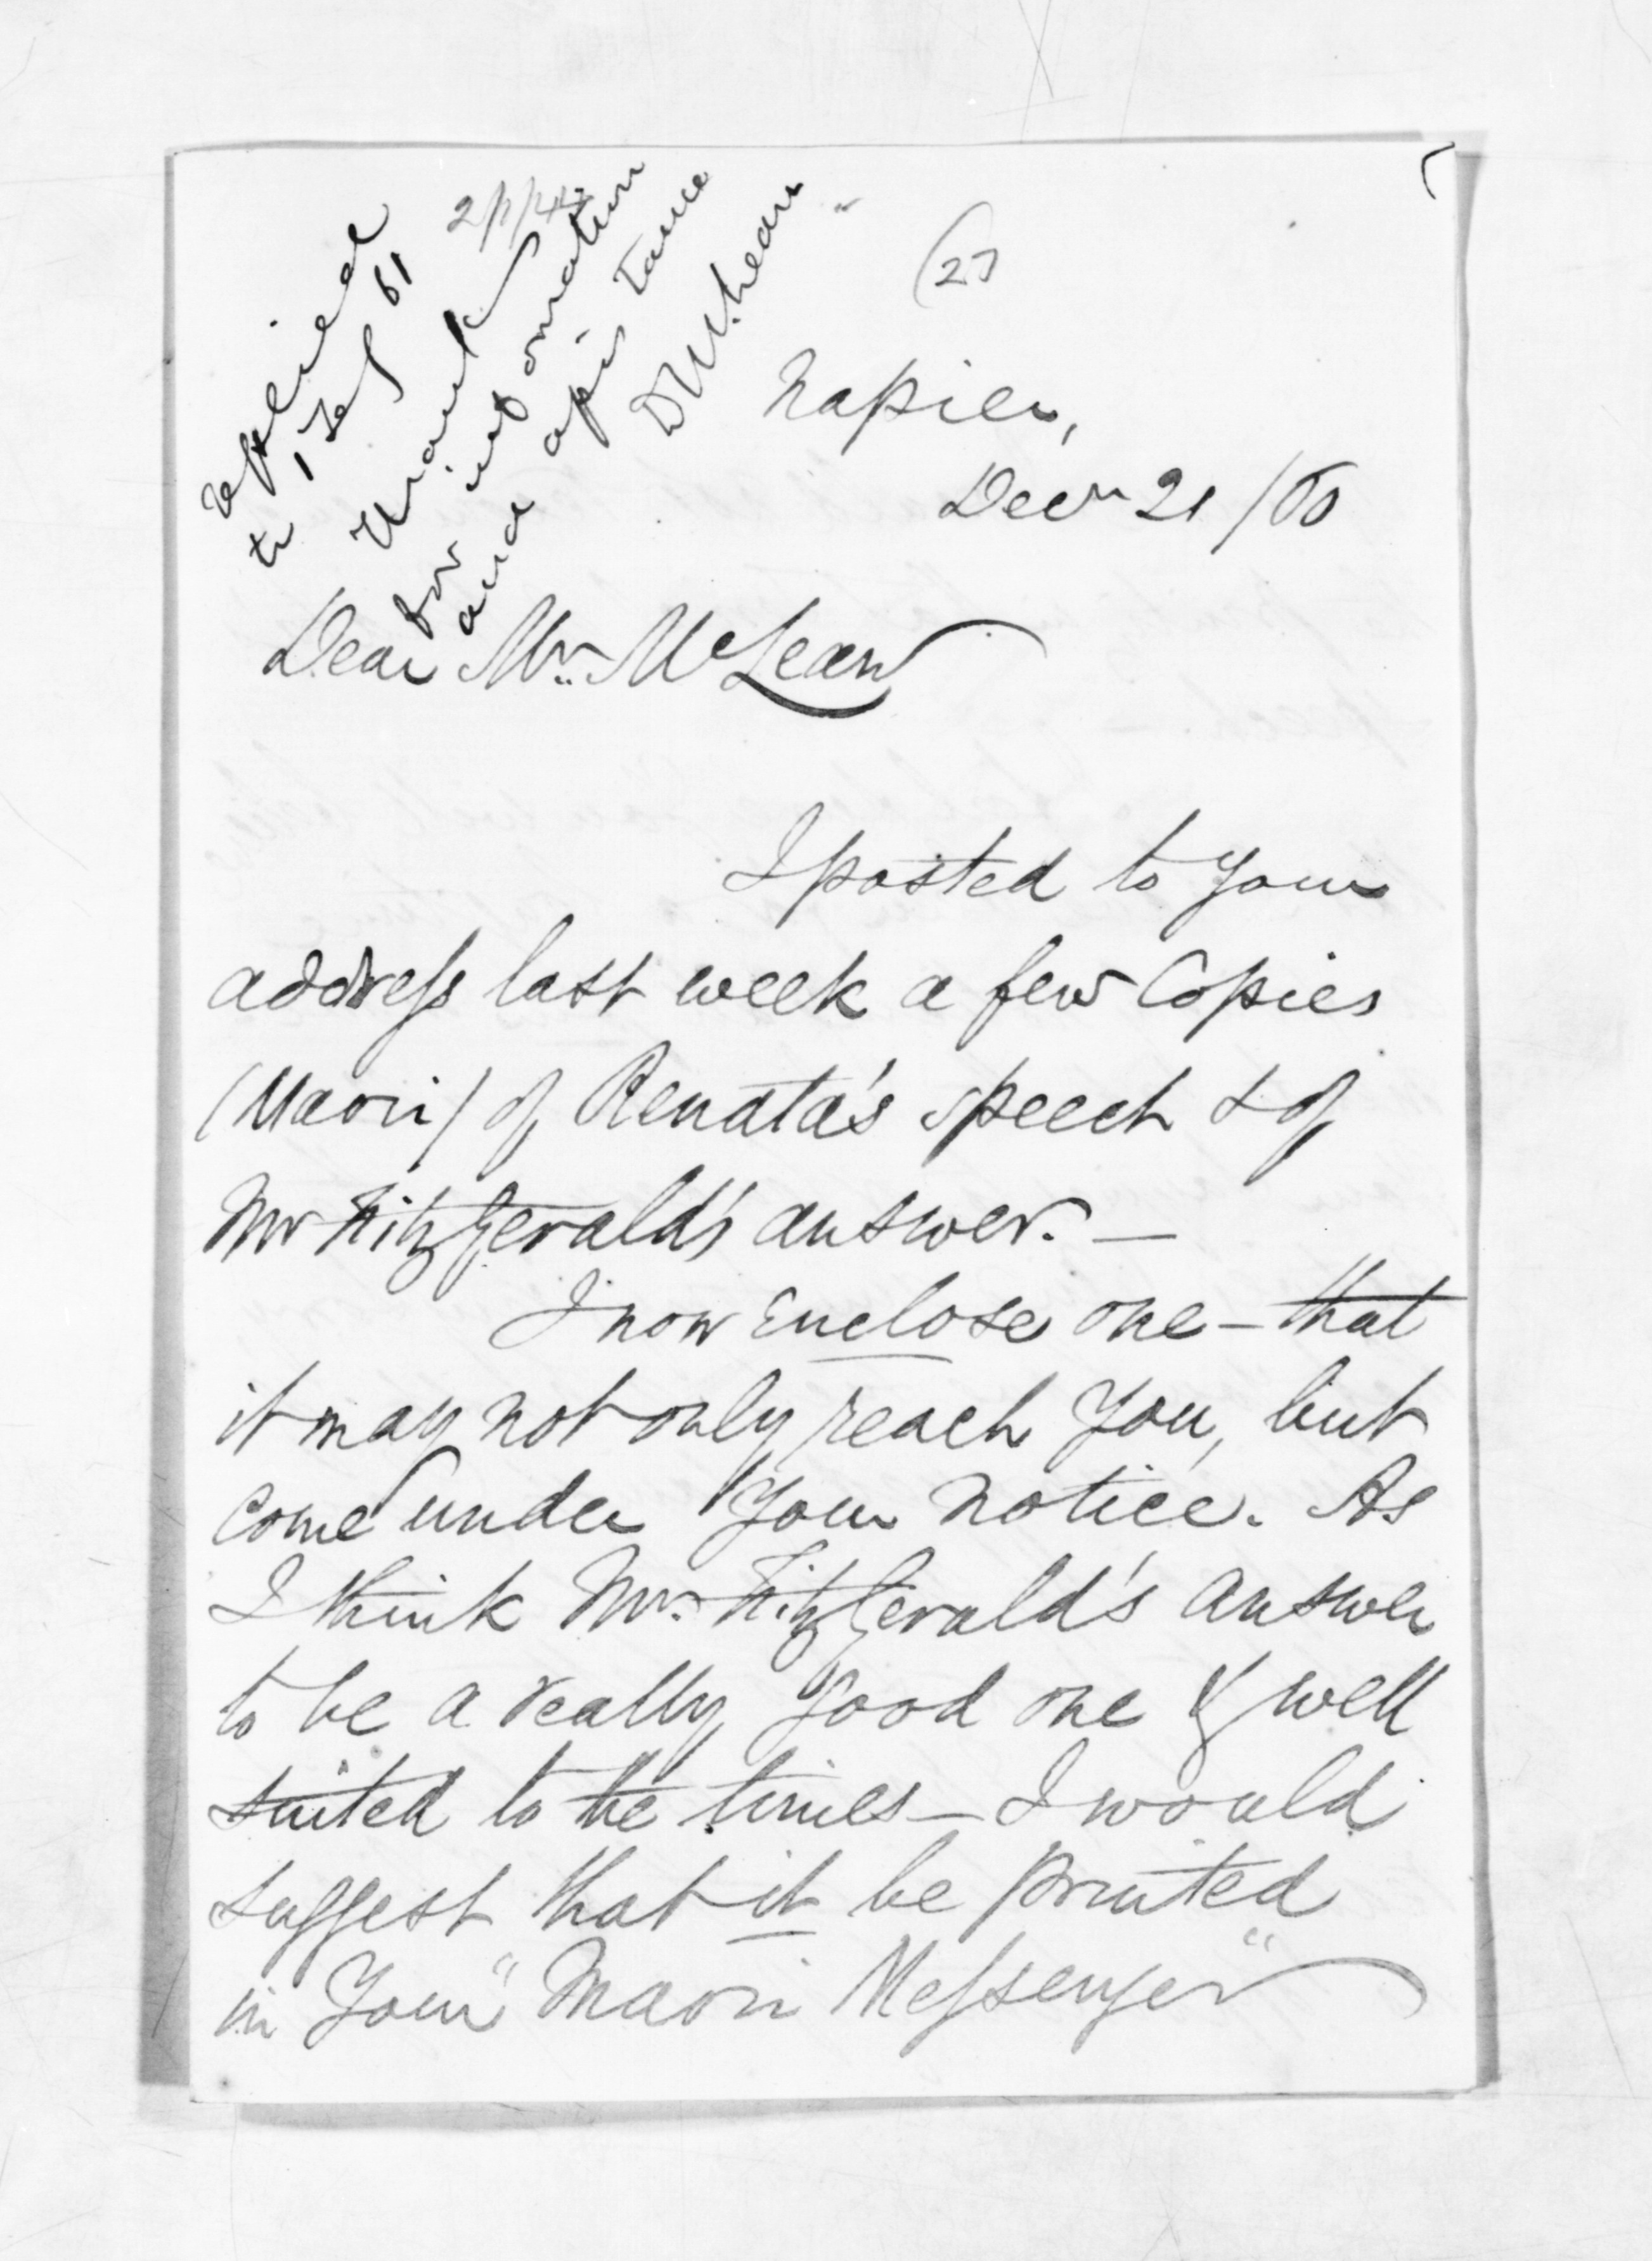 replied
to 1 Feb 61
Thanks
for information
and assistance
D McLean
(27
Napier,
Decr 21/60
Dear Mr. McLean
I posted to your
address last week a few Copies
(Maori) of Renata's speech & of
Mr FitzGerald's answer. —
I now enclose one — that
it may not only reach you, but
come under your notice. As
I think Mr. FitzGerald's answer
to be a really good one & well
suited to the times — I would
suggest that it be printed
in your "Maori Messenger"